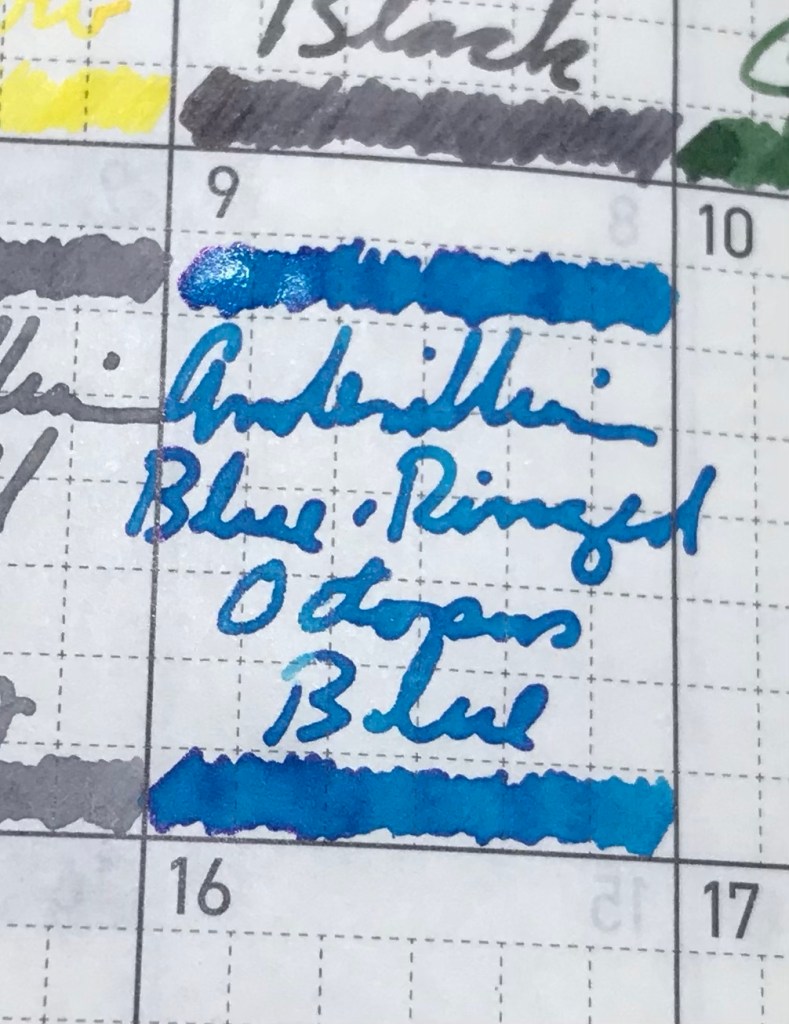 Black
9
10
Anderillium
Blue-Ringed
Octopus
Blue
16
17